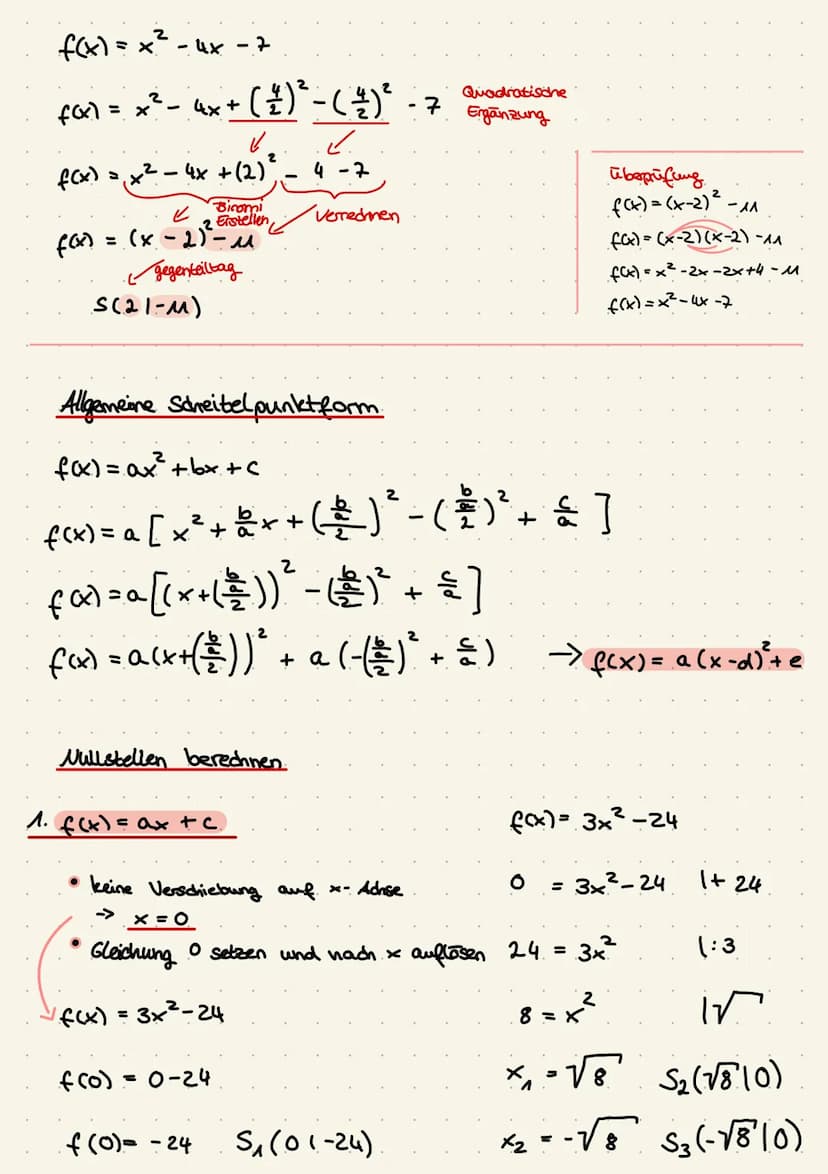 f(x) = x² - 4x - 7
f(x) = x² - 4x + (4/2)² - (4/2)² - 7 Quadratische Ergänzung
f(x) = x² - 4x + (2)² - 4 - 7
Binomi Erstellen verrechnen
f(x) = (x - 2)² - 11
gegenteiltag
S(2|-11)
Überprüfung
f(x) = (x-2)² - 11
f(x) = (x-2)(x-2) - 11
f(x) = x² - 2x - 2x + 4 - 11
f(x) = x² - 4x - 7
Allgemeine Scheitelpunktform
f(x) = ax² + bx + c
f(x) = a [ x² + b/a x + ((b/a)/2)² - ((b/a)/2)² + c/a ]
f(x) = a [(x + ((b/a)/2))² - ((b/a)/2)² + c/a ]
f(x) = a(x + ((b/a)/2))² + a (-((b/a)/2)² + c/a ) → f(x) = a (x - d)² + e
Nullstellen berechnen
1. f(x) = ax + c
• keine Verschiebung auf x-Achse
→ x = 0
• Gleichung 0 setzen und nach x auflösen
f(x) = 3x² - 24
f(0) = 0 - 24
f(0) = - 24 S₁(0|-24)
f(x) = 3x² - 24
0 = 3x² - 24 |+ 24
24 = 3x² |:3
8 = x² |√
x₁ = √8 S₂(√8|0)
x₂ = -√8 S₃(-√8|0)